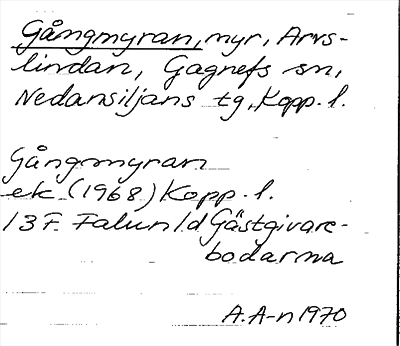 Gångmyran, myr, Arvs-
lindan, Gagnefs sn,
Nedansiljans tg, Kopp. l.
Gångmyran
ek (1968) Kopp. l.
13 F. Falun 1d Gästgivare-
bodarna
A. A-n 1970